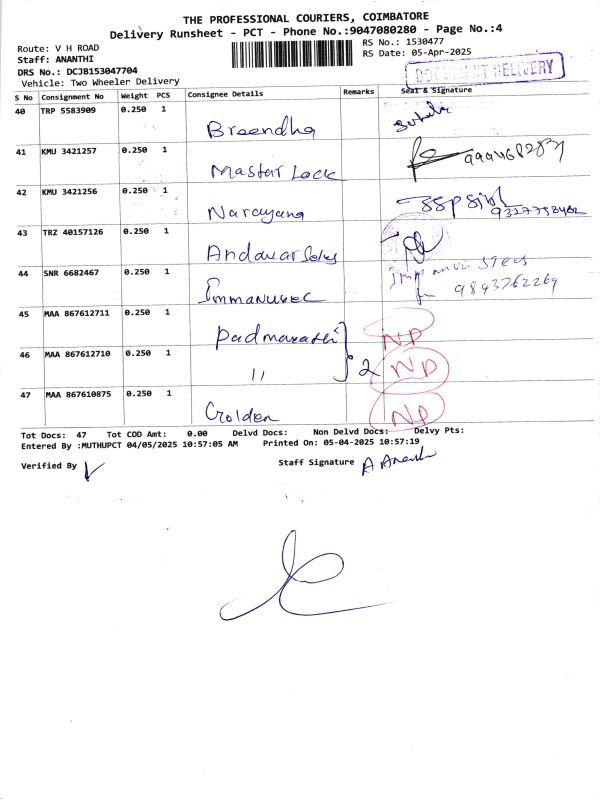 THE PROFESSIONAL COURIERS, COIMBATORE
Delivery Runsheet - PCT - Phone No.:9047080280 - Page No.:4
Route: V H ROAD
RS No.: 1530477
Staff: ANANTHI
RS Date: 05-Apr-2025
DRS No.: DCJB153047704
Vehicle: Two Wheeler Delivery
DOCUMENT DELIVERY
S No Consignment No Weight PCS Consignee Details Remarks Seal & Signature
40 TRP 5583909 0.250 1
Breendha
41 KMU 3421257 0.250 1
Master Lock
42 KMU 3421256 0.250 1
Narayana
43 TRZ 40157126 0.250 1
Andavar Sales
44 SNR 6682467 0.250 1
Immanuvel
9843762269
45 MAA 867612711 0.250 1
Padmavathi NP
46 MAA 867612710 0.250 1
11 } 2 NP
47 MAA 867610875 0.250 1
Golden NP
Tot Docs: 47 Tot COD Amt: 0.00 Delvd Docs: Non Delvd Docs: Delvy Pts:
Entered By :MUTHUPCT 04/05/2025 10:57:05 AM Printed On: 05-04-2025 10:57:19
Verified By
Staff Signature A Ananthi